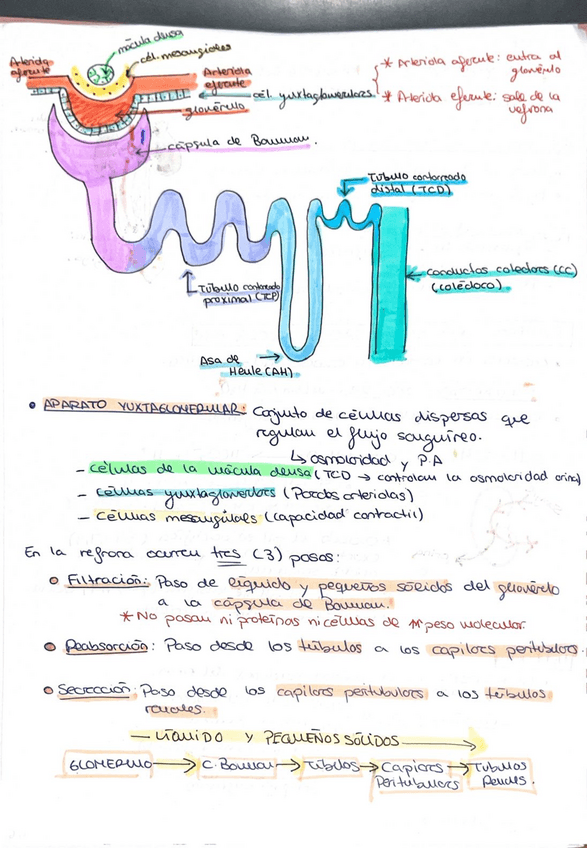 mácula densa
cél. mesangiales
Arteriola
aferente
Arteriola
eferente
cél. yuxtaglomerulares
glomérulo
* Arteriola aferente: entra al
glomérulo
* Arteriola eferente: sale de la
nefrona
cápsula de Bowman.
Túbulo contorneado
distal (TCD)
conductos colectores (CC)
(colédoco)
Túbulo contorneado
proximal (TCP)
Asa de
Henle (AH)
• APARATO YUXTAGLOMERULAR: Conjunto de células dispersas que
regulan el flujo sanguíneo.
↳ osmolaridad y P.A
- células de la mácula densa (TCD → controlan la osmolaridad orina)
- células yuxtaglomerulares (Paredes arteriolas)
- células mesangiales (capacidad contractil)
En la nefrona ocurren tres (3) pasos:
• Filtración: Paso de líquido y pequeños sólidos del glomérulo
a la cápsula de Bowman.
* No pasan ni proteínas ni células de ↑ peso molecular.
• Reabsorción: Paso desde los túbulos a los capilares peritubulares.
• Secreción: Paso desde los capilares peritubulares a los túbulos
renales.
— LÍQUIDO Y PEQUEÑOS SÓLIDOS →
GLOMERULO → C. Bowman → Túbulos → Capilares → Tubulos
Peritubulares Renales.